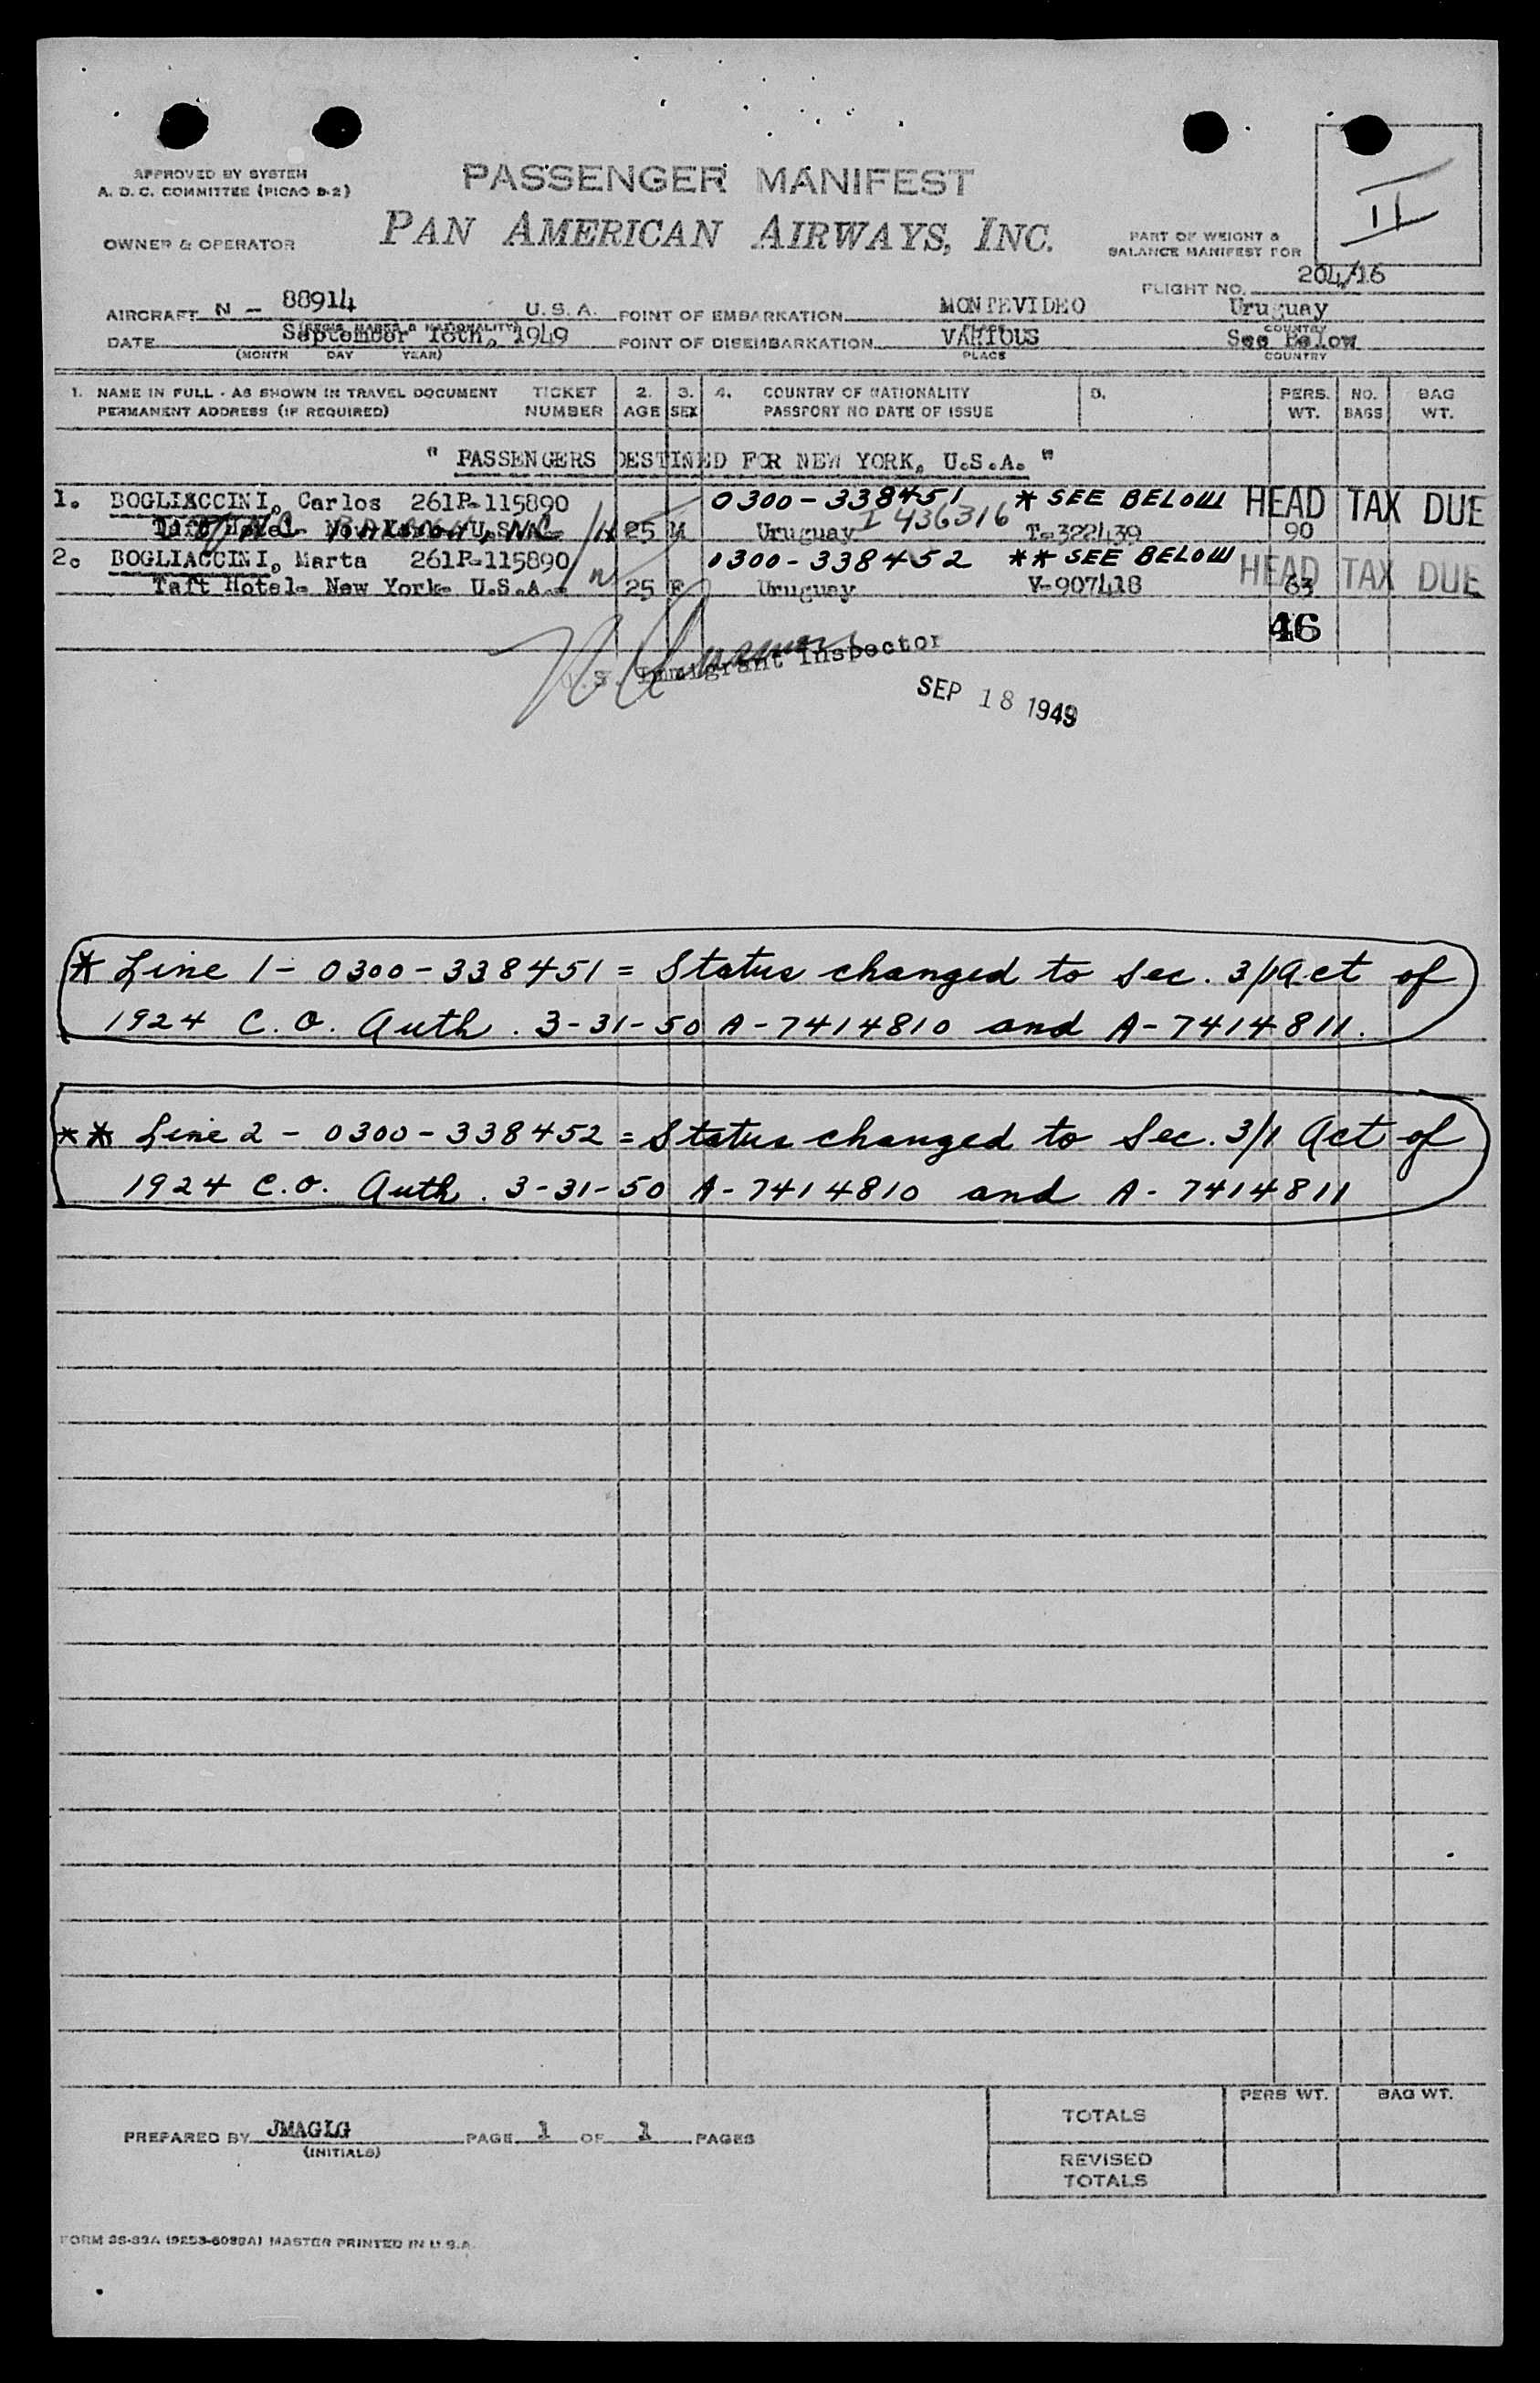 APPROVED BY SYSTEM
A. D. C. COMMITTEE (PICAO D-2)
PASSENGER MANIFEST
PAN AMERICAN AIRWAYS, INC.
OWNER & OPERATOR
PART OF WEIGHT &
BALANCE MANIFEST FOR
II
FLIGHT NO. 204/16
AIRCRAFT N - 88914 U. S. A. POINT OF EMBARKATION MONTEVIDEO Uruguay
(REGIS. MARKS & NATIONALITY) PLACE COUNTRY
DATE September 18th, 1949 POINT OF DISEMBARKATION VARIOUS See Below
(MONTH DAY YEAR) PLACE COUNTRY
1. NAME IN FULL - AS SHOWN IN TRAVEL DOCUMENT TICKET 2. 3. 4. COUNTRY OF NATIONALITY 5. PERS. NO. BAG
PERMANENT ADDRESS (IF REQUIRED) NUMBER AGE SEX PASSPORT NO DATE OF ISSUE WT. BAGS WT.
" PASSENGERS DESTINED FOR NEW YORK, U.S.A. "
1. BOGLIACCINI, Carlos 261P-115890 0300-338451 * SEE BELOW HEAD TAX DUE
25 M Uruguay I 436316 T-322439 90
2. BOGLIACCINI, Marta 261P-115890 0300-338452 ** SEE BELOW HEAD TAX DUE
Taft Hotel- New York- U.S.A.- 25 F Uruguay V-907418 63
46
U.S. Immigrant Inspector
SEP 18 1949
* Line 1 - 0300-338451 = Status changed to Sec. 3/1 Act of
1924 C.O. Auth. 3-31-50 A-7414810 and A-7414811.
** Line 2 - 0300-338452 = Status changed to Sec. 3/1 Act of
1924 C.O. Auth. 3-31-50 A-7414810 and A-7414811
PERS WT. BAG WT.
TOTALS
PREPARED BY JMAGLG PAGE 1 OF 1 PAGES
(INITIALS)
REVISED
TOTALS
MASTER PRINTED IN U.S.A.